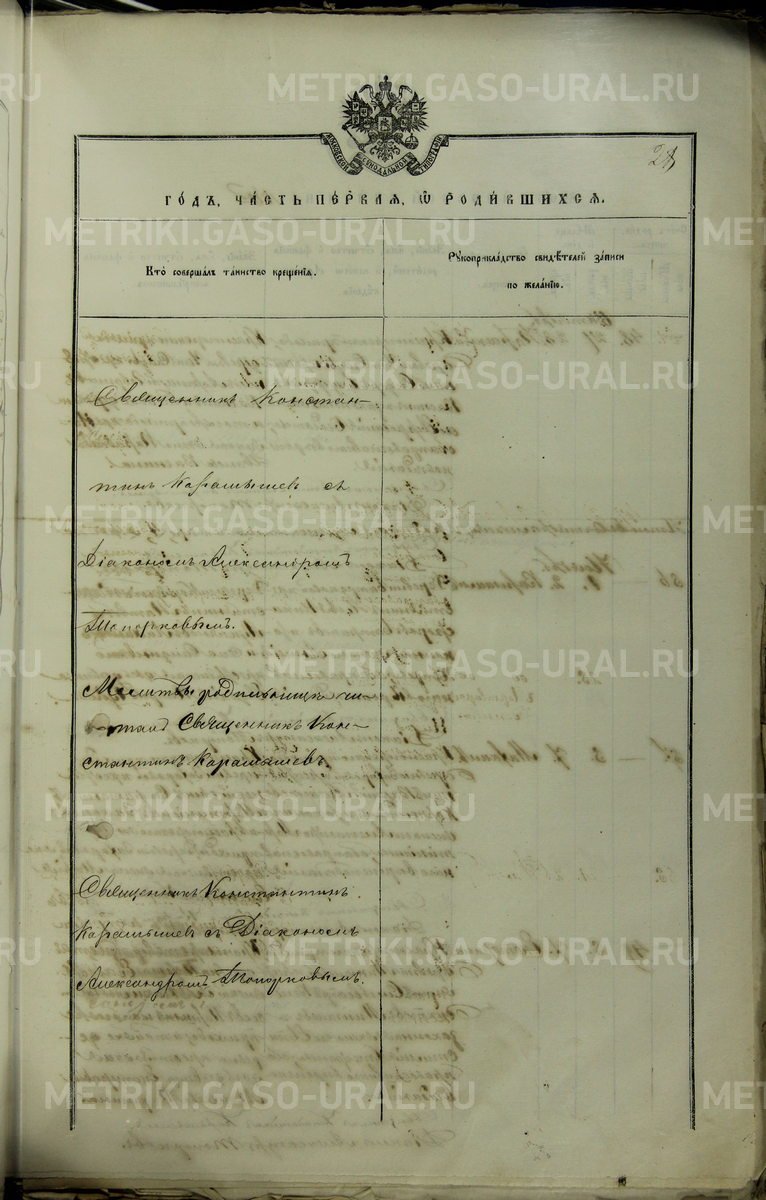 METRIKI.GASO-URAL.RU
МОСКОВСКОЙ СѴНОДАЛЬНОЙ ТИПОГРАФІИ
28
ГО́ДЪ, ЧА́СТЬ ПЕ́РВАЯ, Ѽ РОДИ́ВШИХСЯ.
Кто̀ совершалъ таинство крещенїя.
Рꙋкоприкла́дство свидѣ́телей за́писи
по жела́нїю.
Священникъ Констан-
тинъ Карамышевъ съ
Діакономъ Александромъ
Топорковымъ.
Молитвы родильницѣ чи-
талъ Священникъ Кон-
стантинъ Карамышевъ.
Священникъ Константинъ
Карамышевъ съ Діакономъ
Александромъ Топорковымъ.